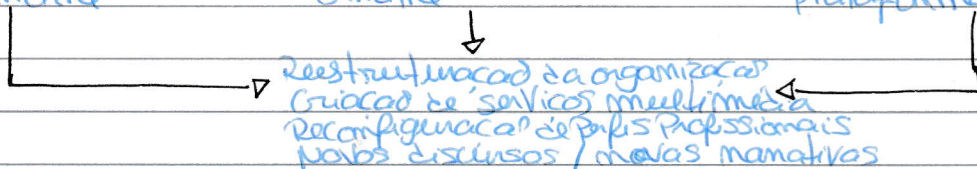 Reestruturacao da organizacao
Criacao de servicos multimédia
Reconfiguracao de Perfis Profissionais
Novos discursos / novas narrativas